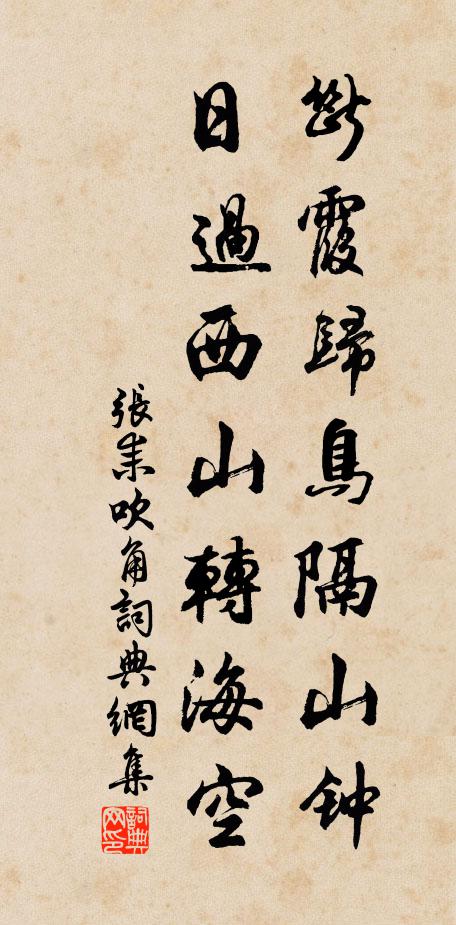 斷霞歸鳥隔山钟
日過西山轉海空
張耒吹角詞典網集
詞典网印